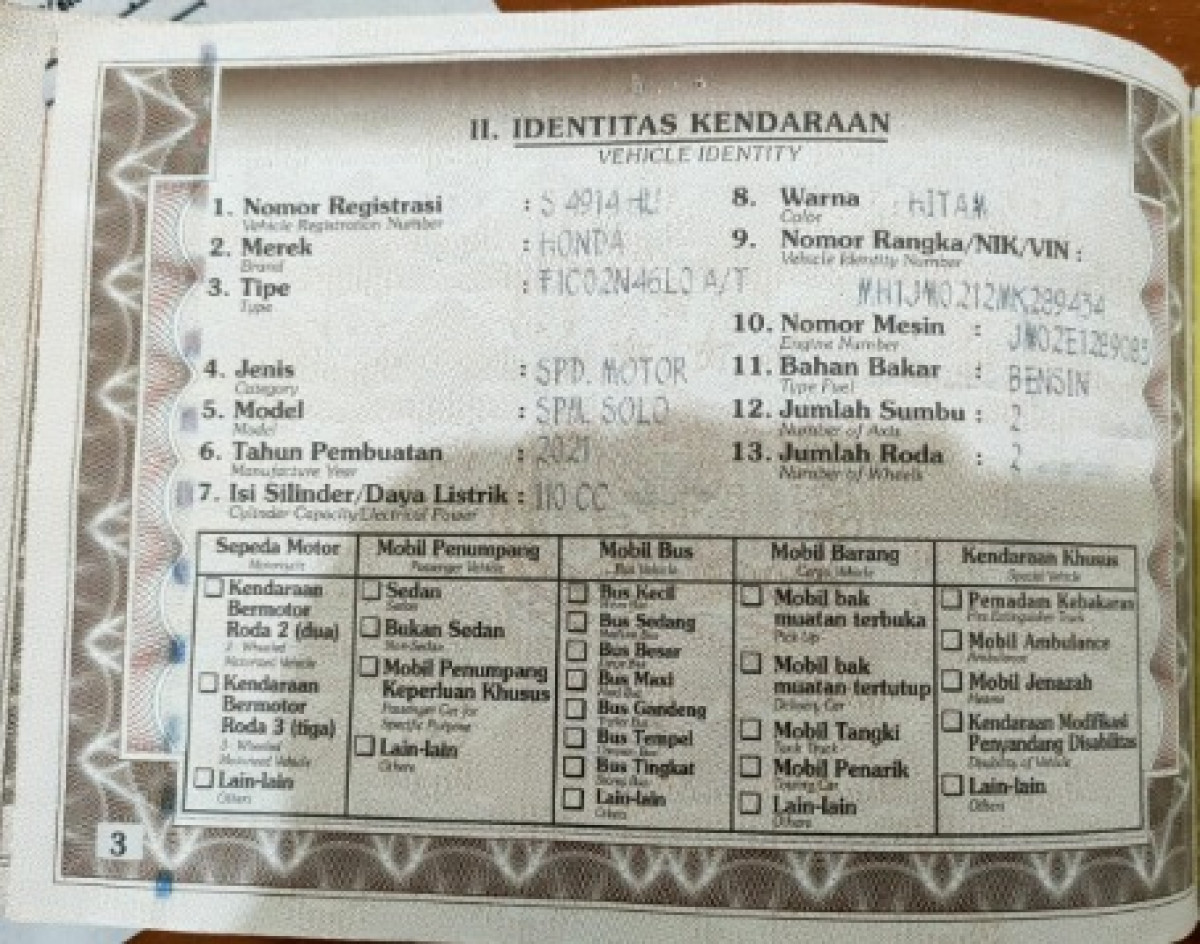 II. IDENTITAS KENDARAAN
VEHICLE IDENTITY
1. Nomor Registrasi : S 4914
Vehicle Registration Number
2. Merek : HONDA
Brand
3. Tipe : F1C02N46L0 A/T
Type
4. Jenis : SPD. MOTOR
Category
5. Model : SPM. SOLO
Model
6. Tahun Pembuatan : 2021
Manufacture Year
7. Isi Silinder/Daya Listrik : 110 CC
Cylinder Capacity/Electrical Power
8. Warna : HITAM
Color
9. Nomor Rangka/NIK/VIN :
Vehicle Identity Number
MH1JM0212MK289434
10. Nomor Mesin :
Engine Number
11. Bahan Bakar : BENSIN
Type Fuel
12. Jumlah Sumbu : 2
Number of Axis
13. Jumlah Roda : 2
Number of Wheels
Sepeda Motor
Motorcycle
Kendaraan
Bermotor
Roda 2 (dua)
2 Wheeled
Motorized Vehicle
Kendaraan
Bermotor
Roda 3 (tiga)
3 Wheeled
Motorized Vehicle
Lain-lain
Others
Mobil Penumpang
Passenger Vehicle
Sedan
Sedan
Bukan Sedan
Non-Sedan
Mobil Penumpang
Keperluan Khusus
Passenger Car for
Specific Purpose
Lain-lain
Others
Mobil Bus
Bus Vehicle
Bus Kecil
Bus Sedang
Bus Besar
Bus Maxi
Bus Gandeng
Bus Tempel
Bus Tingkat
Lain-lain
Others
Mobil Barang
Cargo Vehicle
Mobil bak
muatan terbuka
Pick Up
Mobil bak
muatan tertutup
Delivery Car
Mobil Tangki
Tank Truck
Mobil Penarik
Towing Car
Lain-lain
Others
Kendaraan Khusus
Special Vehicle
Pemadam Kebakaran
Fire Extinguisher Truck
Mobil Ambulance
Ambulance
Mobil Jenazah
Hearse
Kendaraan Modifikasi
Penyandang Disabilitas
Disability of Vehicle
Lain-lain
Others
3